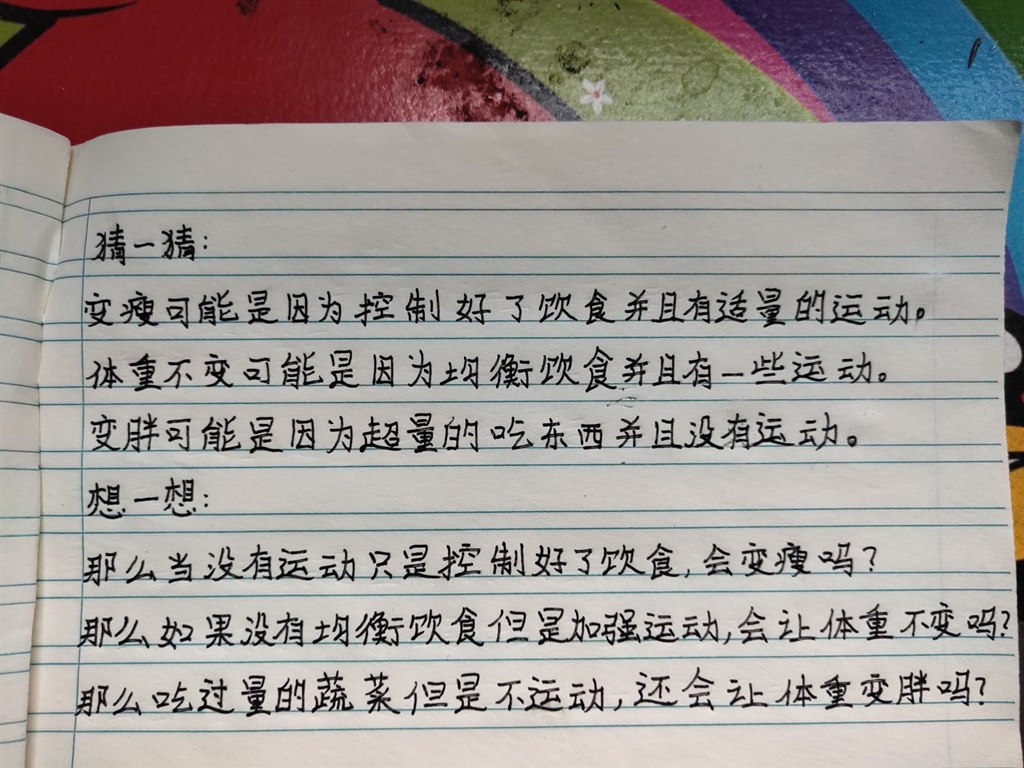 猜一猜:
变瘦可能是因为控制好了饮食并且有适量的运动。
体重不变可能是因为均衡饮食并且有一些运动。
变胖可能是因为超量的吃东西并且没有运动。
想一想:
那么当没有运动只是控制好了饮食,会变瘦吗?
那么如果没有均衡饮食但是加强运动,会让体重不变吗?
那么吃过量的蔬菜但是不运动,还会让体重变胖吗?